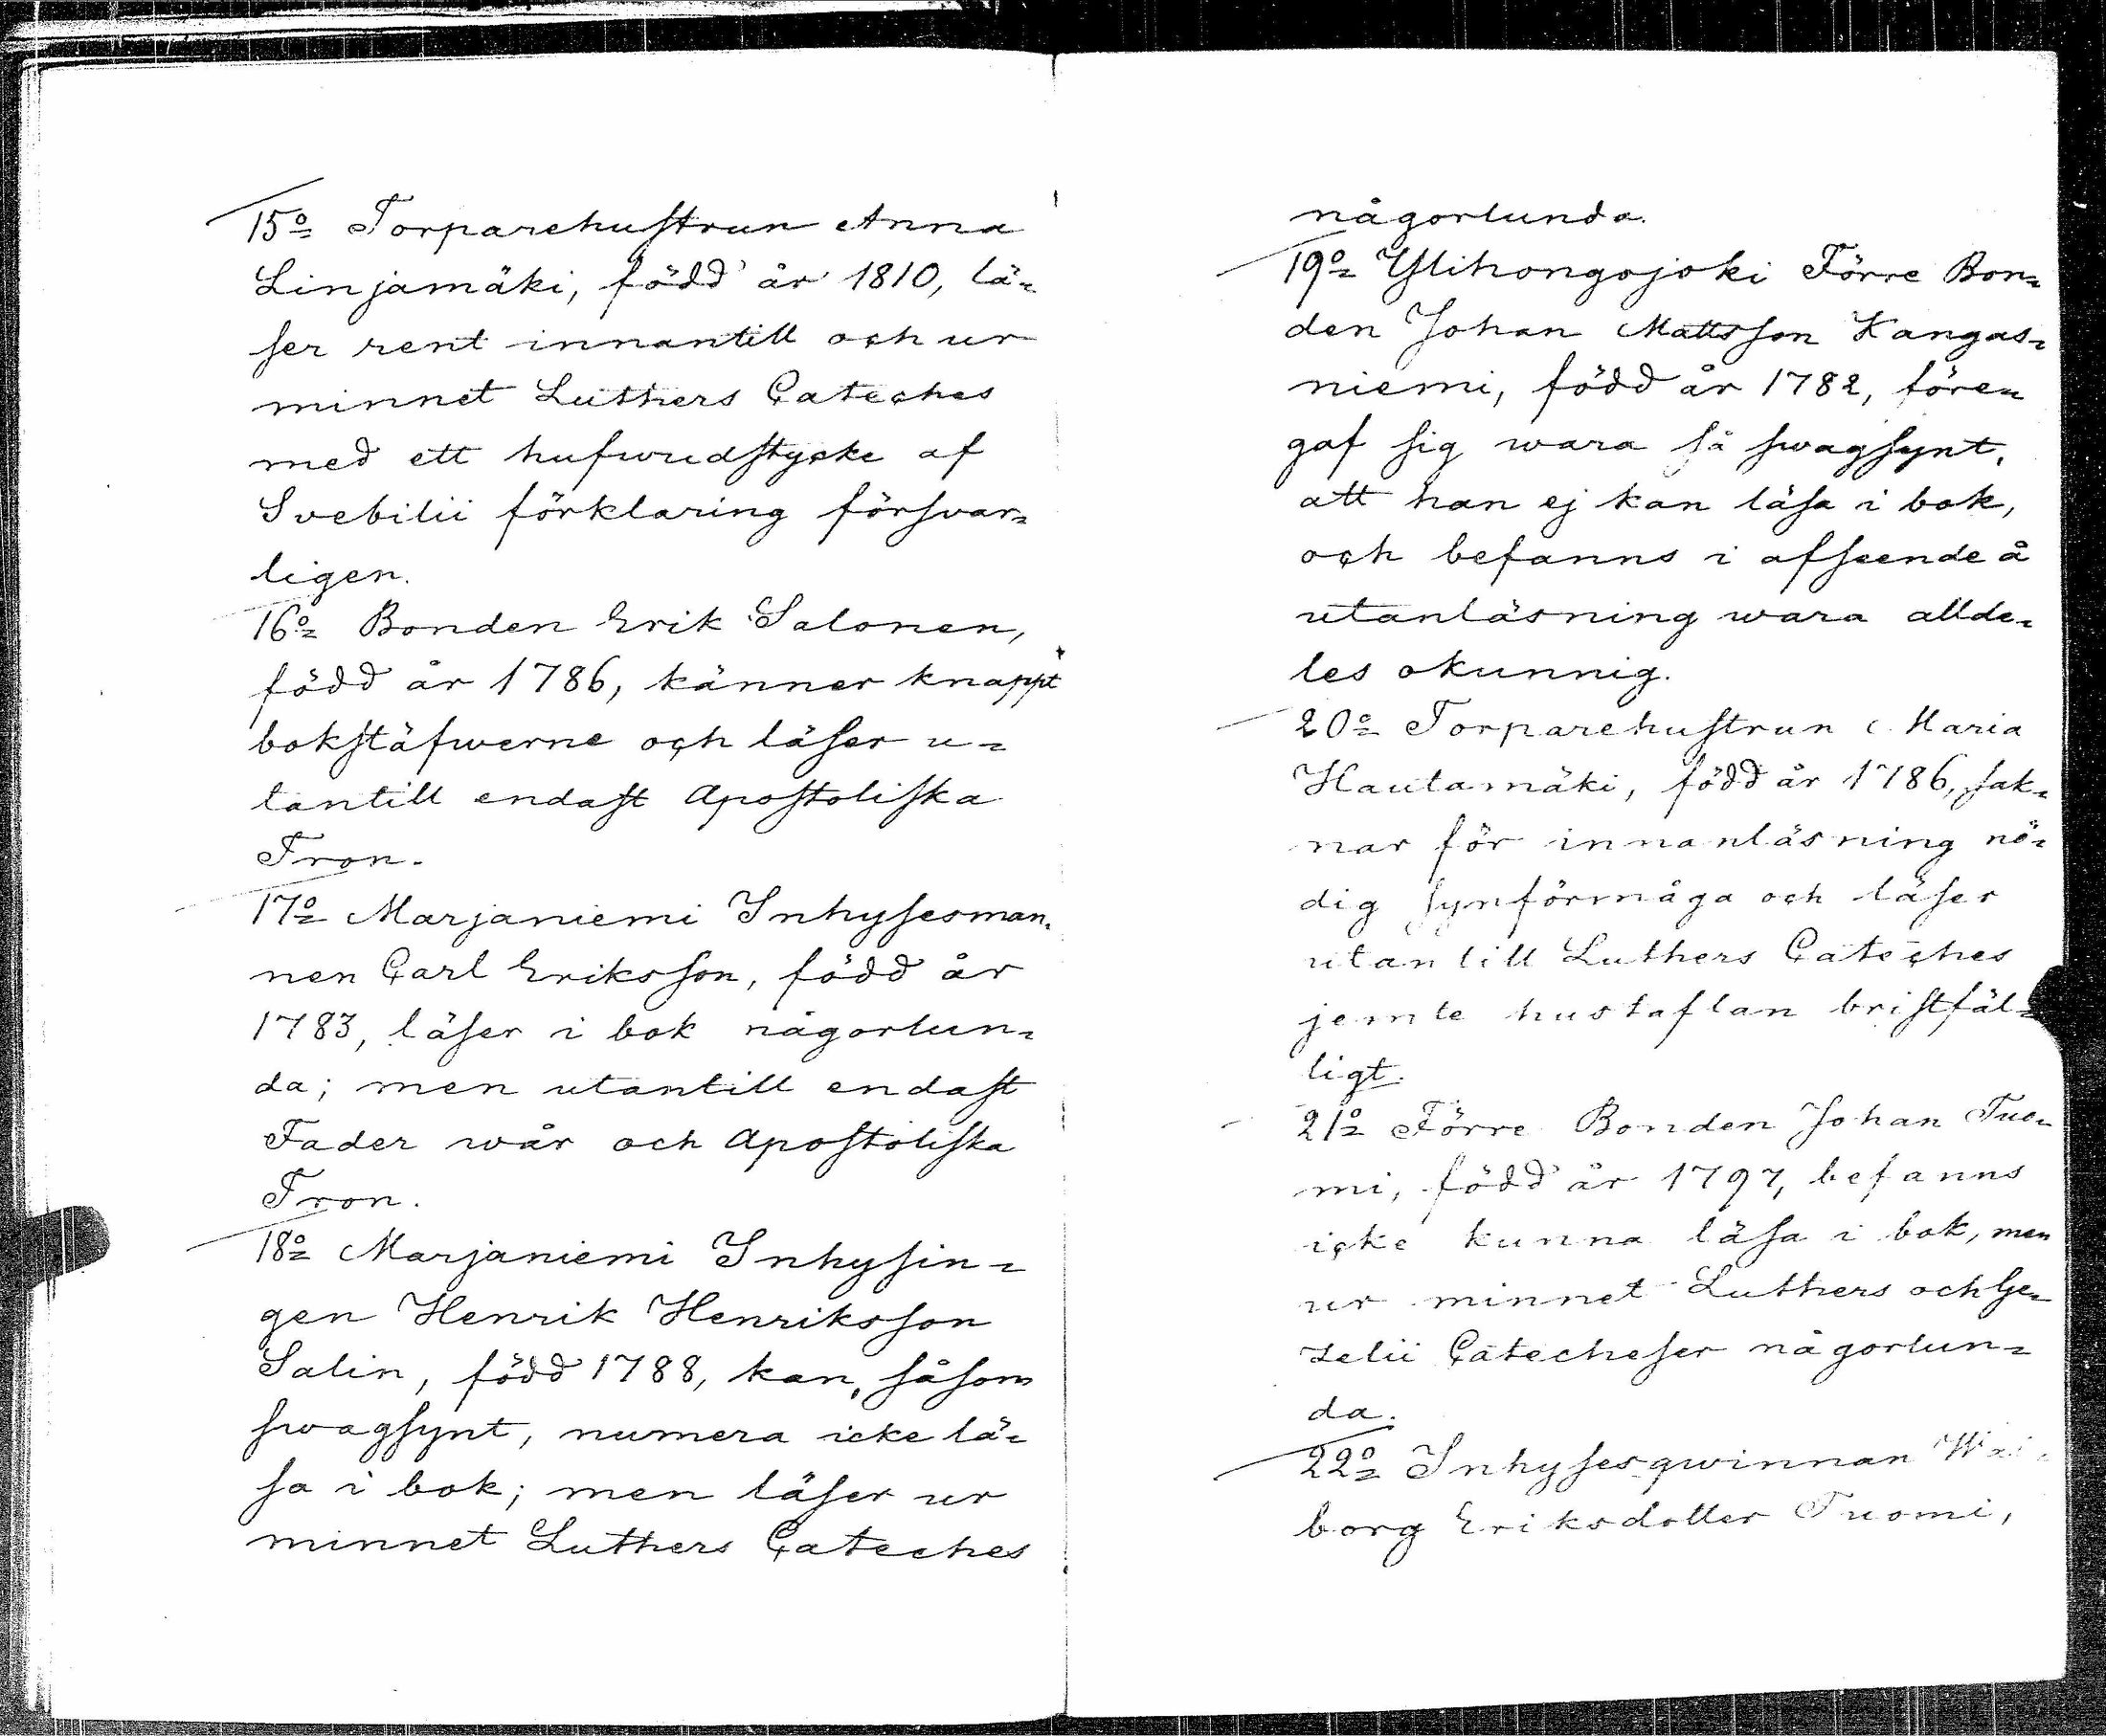 15o= Torparehustrun Anna
Linjamäki, född år 1810, lä=
ser rent innantill och ur
minnet Luthers Cateches
med ett hufwudstycke af
Svebilii förklaring försvar=
ligen.
16o= Bonden Erik Salonen,
född år 1786, känner knappt
bokstäfwerne och läser u=
tantill endast Apostoliska
Tron.
17o= Marjaniemi Inhysesman=
nen Carl Eriksson, född år
1783, läser i bok någorlun=
da; men utantill endast
Fader wår och Apostoliska
Tron.
18o= Marjaniemi Inhysin=
gen Henrik Henriksson
Salin, född 1788, kan, såsom
swagsynt, numera icke lä=
sa i bok; men läser ur
minnet Luthers Cateches
någorlunda.
19o= Ylihongojoki Förre Bon=
den Johan Mattsson Kangas=
niemi, född år 1782, före=
gaf sig wara så swagsynt,
att han ej kan läsa i bok,
och befanns i afseende å
utanläsning wara allde=
les okunnig.
20o= Torparehustrun Maria
Hautamäki, född år 1786, sak=
nar för innanläsning nö=
dig synförmåga och läser
utantill Luthers Cateches
jemte hustaflan bristfäl=
ligt.
21o= Förre Bonden Johan Tuo=
mi, född år 1797, befanns
icke kunna läsa i bok, men
ur minnet Luthers och Ge=
zelii Catecheser någorlun=
da.
22o= Inhysesqwinnan
borg Eriksdotter Tuomi,